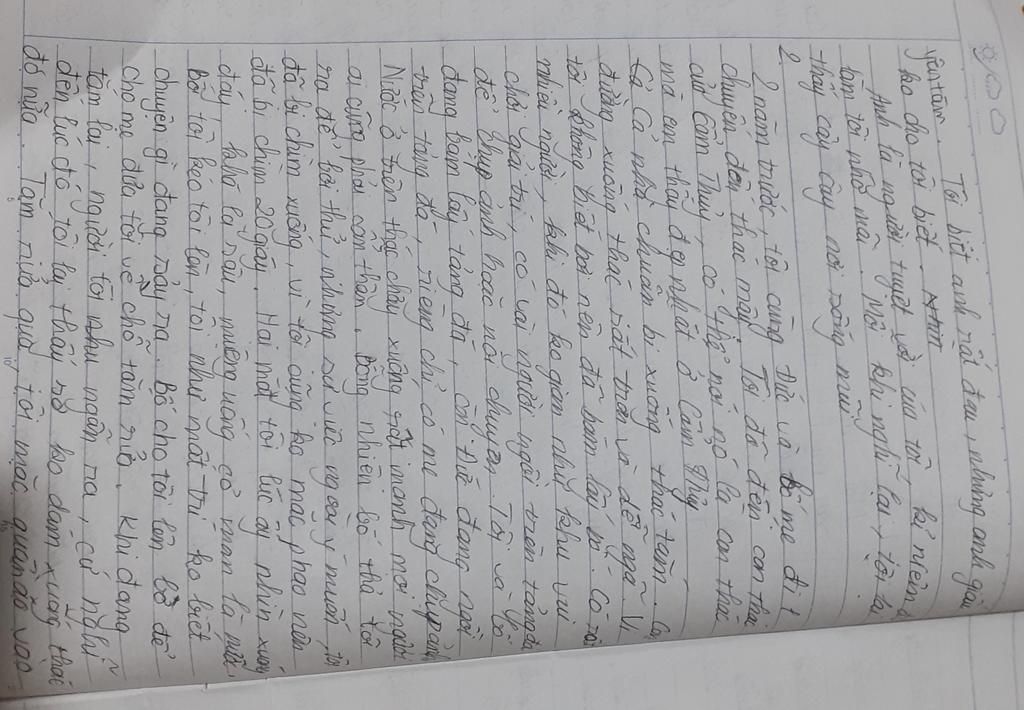 Tôi biết anh rất đau, nhưng anh giấu
ko cho tôi biết.
yên tâm.
Anh là người tuyệt vời của tôi, kỉ niệm
làm tôi nhớ mãi. Mỗi khi nghĩ lại, tôi lại
thấy cay cay nơi sống mũi.
2 năm trước, tôi cùng Đức và bố mẹ đi
chuyến đến thác mây. Tôi đã đến con thác
của Cẩm Thủy, có thể nói nó là con thác
mà em thấy đẹp nhất ở Cẩm Thủy
Cả nhà chuẩn bị xuống thác tắm.
đường xuống thác rất trơn và dễ ngã. Vì
tôi không biết bơi nên đã bám lấy bố. Có rất
nhiều người, khi đó ko gian như khu vui
chơi giải trí, có vài người ngồi trên tảng đá
để chụp ảnh hoặc nói chuyện. Tôi và bố
đang bám lấy tảng đá, còn Đức đang ngồi
trên tảng đá, riêng chỉ có mẹ đang chụp ảnh
Nước ở trên thác chảy xuống rất mạnh nơi người
ai cũng phải cẩn thận. Bỗng nhiên bố thả tôi
ra để bơi thử, nhưng sự việc ngoài ý muốn, tôi
đã bị chìm xuống, vì tôi cũng ko mặc phao nên
đã bị chìm 20 giây. Hai mắt tôi lúc ấy nhìn xuống
đáy, khá là sâu, miệng uống cả ngàn lá nước,
Bố tôi kéo tôi lên, tôi như mất trí ko biết
chuyện gì đang xảy ra. Bố cho tôi lên bờ để
cho mẹ đưa tôi về chỗ tắm rửa. Khi đang
tắm lại, người tôi như ngẩn ra, cứ nghĩ
đến lúc đó tôi lại thấy sợ ko dám xuống thác
đó nữa. Tắm rửa qua, tôi mặc quần áo vào